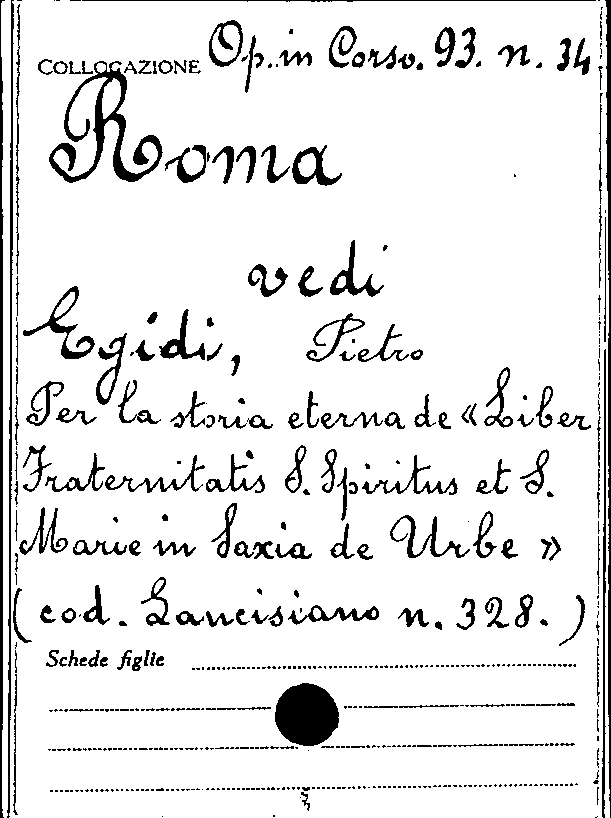 COLLOCAZIONE Op. in Corso. 93. n. 34.
Roma
vedi
Egidi, Pietro
Per la storia eterna de «Liber
Fraternitatis S. Spiritus et S.
Marie in Saxia de Urbe»
(cod. Lancisiano n. 328.)
Schede figlie